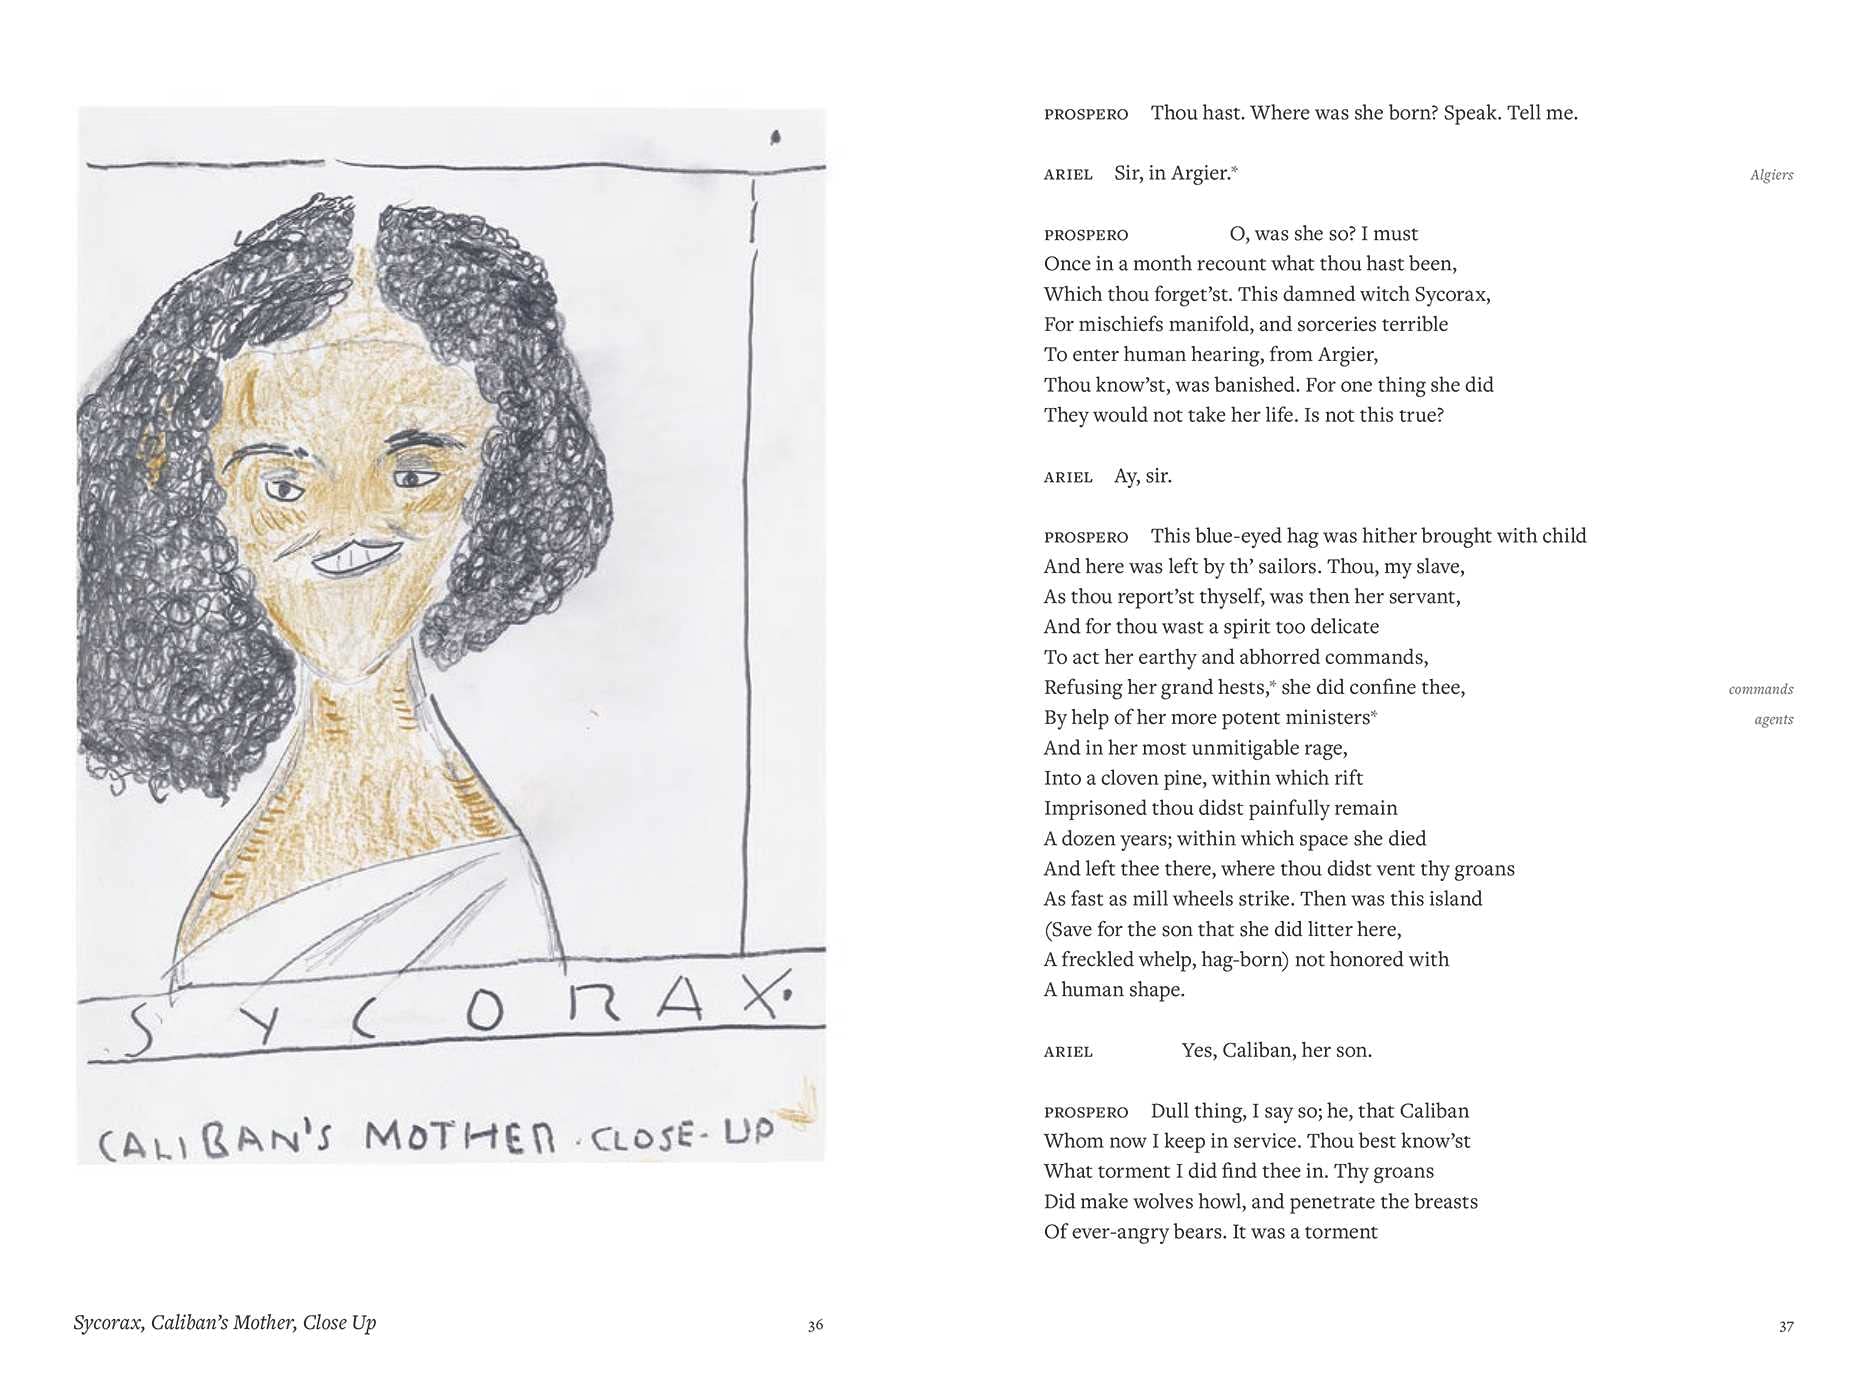 SYCORAX.
CALIBAN'S MOTHER . CLOSE-UP
Sycorax, Caliban’s Mother, Close Up
36
PROSPERO Thou hast. Where was she born? Speak. Tell me.
ARIEL Sir, in Argier.* Algiers
PROSPERO O, was she so? I must
Once in a month recount what thou hast been,
Which thou forget’st. This damned witch Sycorax,
For mischiefs manifold, and sorceries terrible
To enter human hearing, from Argier,
Thou know’st, was banished. For one thing she did
They would not take her life. Is not this true?
ARIEL Ay, sir.
PROSPERO This blue-eyed hag was hither brought with child
And here was left by th’ sailors. Thou, my slave,
As thou report’st thyself, was then her servant,
And for thou wast a spirit too delicate
To act her earthy and abhorred commands,
Refusing her grand hests,* she did confine thee, commands
By help of her more potent ministers* agents
And in her most unmitigable rage,
Into a cloven pine, within which rift
Imprisoned thou didst painfully remain
A dozen years; within which space she died
And left thee there, where thou didst vent thy groans
As fast as mill wheels strike. Then was this island
(Save for the son that she did litter here,
A freckled whelp, hag-born) not honored with
A human shape.
ARIEL Yes, Caliban, her son.
PROSPERO Dull thing, I say so; he, that Caliban
Whom now I keep in service. Thou best know’st
What torment I did find thee in. Thy groans
Did make wolves howl, and penetrate the breasts
Of ever-angry bears. It was a torment
37